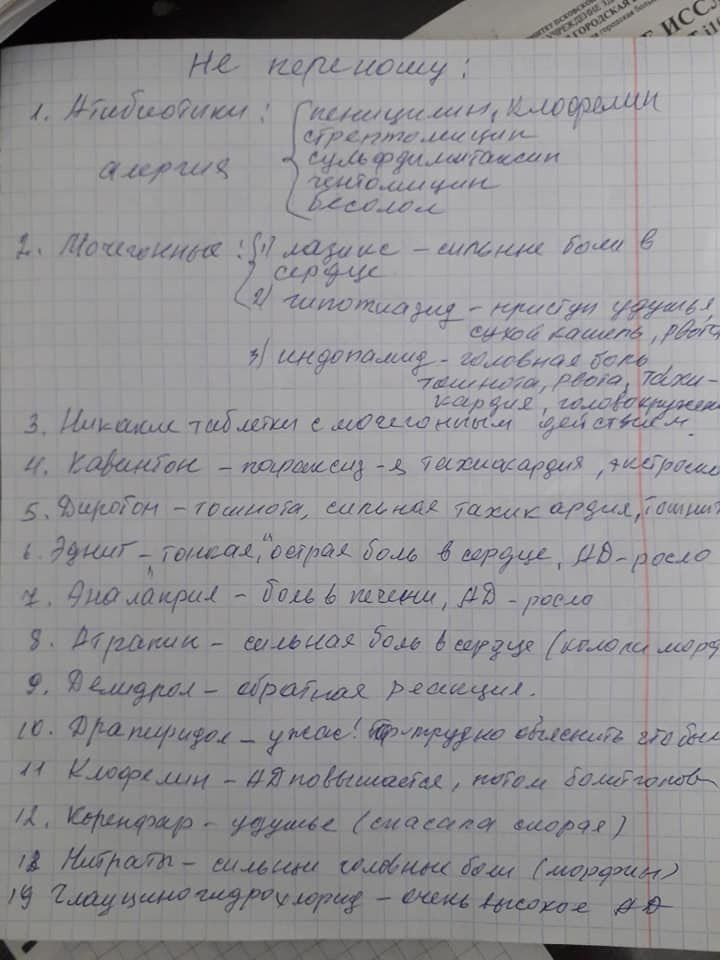 КОМИТЕТ ПСКОВСКО
УЧРЕЖДЕНИЕ ЗД
ГОРОДСКАЯ
городская больн
Е ИССЛ
Не переношу:
1. Атибиотики: пеницилин, Клофелин
стрептомицин
алергия сульфдимитаксин
гентомицин
бесолол
2. Мочегонные: 1) лазикс – сильные боли в
сердце
2) гипотиазид – приступ удушья,
сухой кашель, рвота
3) индопамид – головная боль
тошнота, рвота, тахи-
кардия, головокружен
3. Никакие таблетки с мочегонным действием.
4. Кавинтон – , тахиакардия,
5. Диротон – тошнота, сильная тахикардия, тошнит
6. Эднит – "тонкая," острая боль в сердце, АД – росло
7. Эналаприл – боль в печени, АД – росло
8. Атрапин – сильная боль в сердце (кололи морф
9. Демидрол – обратная реакция.
10. Драперидол – ужас! трудно объяснить что был
11 Клофелин – АД повышается, потом болит голов
12. Коренфар – удушье (спасала скорая)
13 Нитраты – сильные головные боли (морфин)
19 Глауциногидрохлорид – очень высокое АД